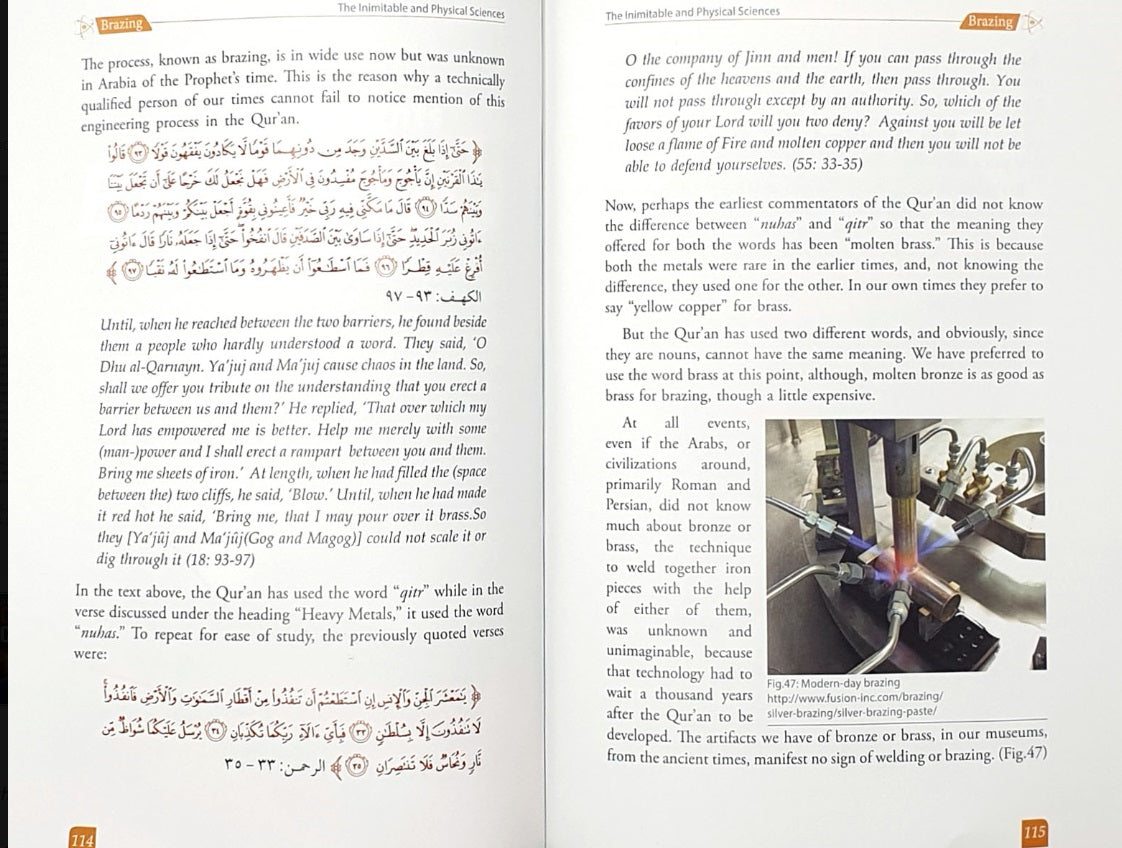 The Inimitable and Physical Sciences
Brazing
The process, known as brazing, is in wide use now but was unknown
in Arabia of the Prophet's time. This is the reason why a technically
qualified person of our times cannot fail to notice mention of this
engineering process in the Qur'an.
﴿ حَتَّىٰٓ إِذَا بَلَغَ بَيْنَ ٱلسَّدَّيْنِ وَجَدَ مِن دُونِهِمَا قَوْمًا لَّا يَكَادُونَ يَفْقَهُونَ قَوْلًا ۝٩٣ قَالُوا۟
يَٰذَا ٱلْقَرْنَيْنِ إِنَّ يَأْجُوجَ وَمَأْجُوجَ مُفْسِدُونَ فِى ٱلْأَرْضِ فَهَلْ نَجْعَلُ لَكَ خَرْجًا عَلَىٰٓ أَن تَجْعَلَ بَيْنَنَا
وَبَيْنَهُمْ سَدًّا ۝٩٤ قَالَ مَا مَكَّنِّى فِيهِ رَبِّى خَيْرٌ فَأَعِينُونِى بِقُوَّةٍ أَجْعَلْ بَيْنَكُمْ وَبَيْنَهُمْ رَدْمًا ۝٩٥
ءَاتُونِى زُبَرَ ٱلْحَدِيدِ حَتَّىٰٓ إِذَا سَاوَىٰ بَيْنَ ٱلصَّدَفَيْنِ قَالَ ٱنفُخُوا۟ حَتَّىٰٓ إِذَا جَعَلَهُۥ نَارًا قَالَ ءَاتُونِىٓ
أُفْرِغْ عَلَيْهِ قِطْرًا ۝٩٦ فَمَا ٱسْطَٰعُوٓا۟ أَن يَظْهَرُوهُ وَمَا ٱسْتَطَٰعُوا۟ لَهُۥ نَقْبًا ۝٩٧ ﴾
الكهف: ٩٣- ٩٧
Until, when he reached between the two barriers, he found beside
them a people who hardly understood a word. They said, 'O
Dhu al-Qarnayn. Ya'juj and Ma'juj cause chaos in the land. So,
shall we offer you tribute on the understanding that you erect a
barrier between us and them?' He replied, 'That over which my
Lord has empowered me is better. Help me merely with some
(man-)power and I shall erect a rampart between you and them.
Bring me sheets of iron.' At length, when he had filled the (space
between the) two cliffs, he said, 'Blow.' Until, when he had made
it red hot he said, 'Bring me, that I may pour over it brass.So
they [Ya'jûj and Ma'jûj(Gog and Magog)] could not scale it or
dig through it (18: 93-97)
In the text above, the Qur'an has used the word "qitr" while in the
verse discussed under the heading "Heavy Metals," it used the word
"nuhas." To repeat for ease of study, the previously quoted verses
were:
﴿ يَٰمَعْشَرَ ٱلْجِنِّ وَٱلْإِنسِ إِنِ ٱسْتَطَعْتُمْ أَن تَنفُذُوا۟ مِنْ أَقْطَارِ ٱلسَّمَٰوَٰتِ وَٱلْأَرْضِ فَٱنفُذُوا۟
لَا تَنفُذُونَ إِلَّا بِسُلْطَٰنٍ ۝٣٣ فَبِأَىِّ ءَالَآءِ رَبِّكُمَا تُكَذِّبَانِ ۝٣٤ يُرْسَلُ عَلَيْكُمَا شُوَاظٌ مِّن
نَّارٍ وَنُحَاسٌ فَلَا تَنتَصِرَانِ ۝٣٥ ﴾ الرحمن: ٣٣ - ٣٥
114
The Inimitable and Physical Sciences
Brazing
O the company of Jinn and men! If you can pass through the
confines of the heavens and the earth, then pass through. You
will not pass through except by an authority. So, which of the
favors of your Lord will you two deny? Against you will be let
loose a flame of Fire and molten copper and then you will not be
able to defend yourselves. (55: 33-35)
Now, perhaps the earliest commentators of the Qur'an did not know
the difference between "nuhas" and "qitr" so that the meaning they
offered for both the words has been "molten brass." This is because
both the metals were rare in the earlier times, and, not knowing the
difference, they used one for the other. In our own times they prefer to
say "yellow copper" for brass.
But the Qur'an has used two different words, and obviously, since
they are nouns, cannot have the same meaning. We have preferred to
use the word brass at this point, although, molten bronze is as good as
brass for brazing, though a little expensive.
At all events,
even if the Arabs, or
civilizations around,
primarily Roman and
Persian, did not know
much about bronze or
brass, the technique
to weld together iron
pieces with the help
of either of them,
was unknown and
unimaginable, because
that technology had to
wait a thousand years
after the Qur'an to be
developed. The artifacts we have of bronze or brass, in our museums,
from the ancient times, manifest no sign of welding or brazing. (Fig.47)
Fig.47: Modern-day brazing
http://www.fusion-inc.com/brazing/
silver-brazing/silver-brazing-paste/
115